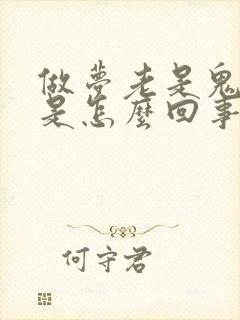 做夢老是鬼
是怎麼回事
何守君